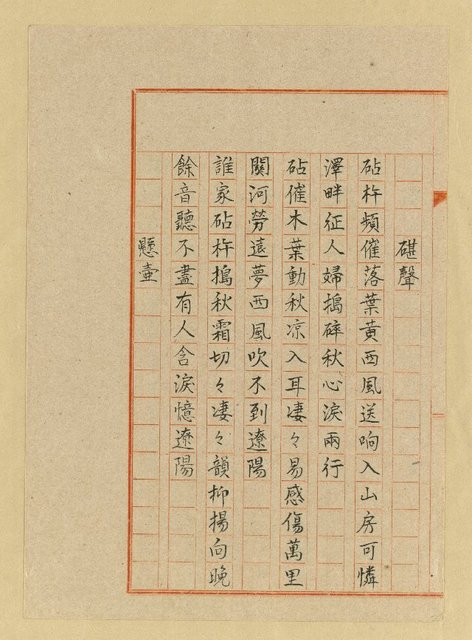 碪聲
砧杵頻催落葉黃西風送响入山房可憐
澤畔征人婦搗碎秋心淚兩行
砧催木葉動秋凉入耳凄々易感傷萬里
關河勞遠夢西風吹不到遼陽
誰家砧杵搗秋霜切々凄々韻抑揚向晚
餘音聽不盡有人含淚憶遼陽
懸壺